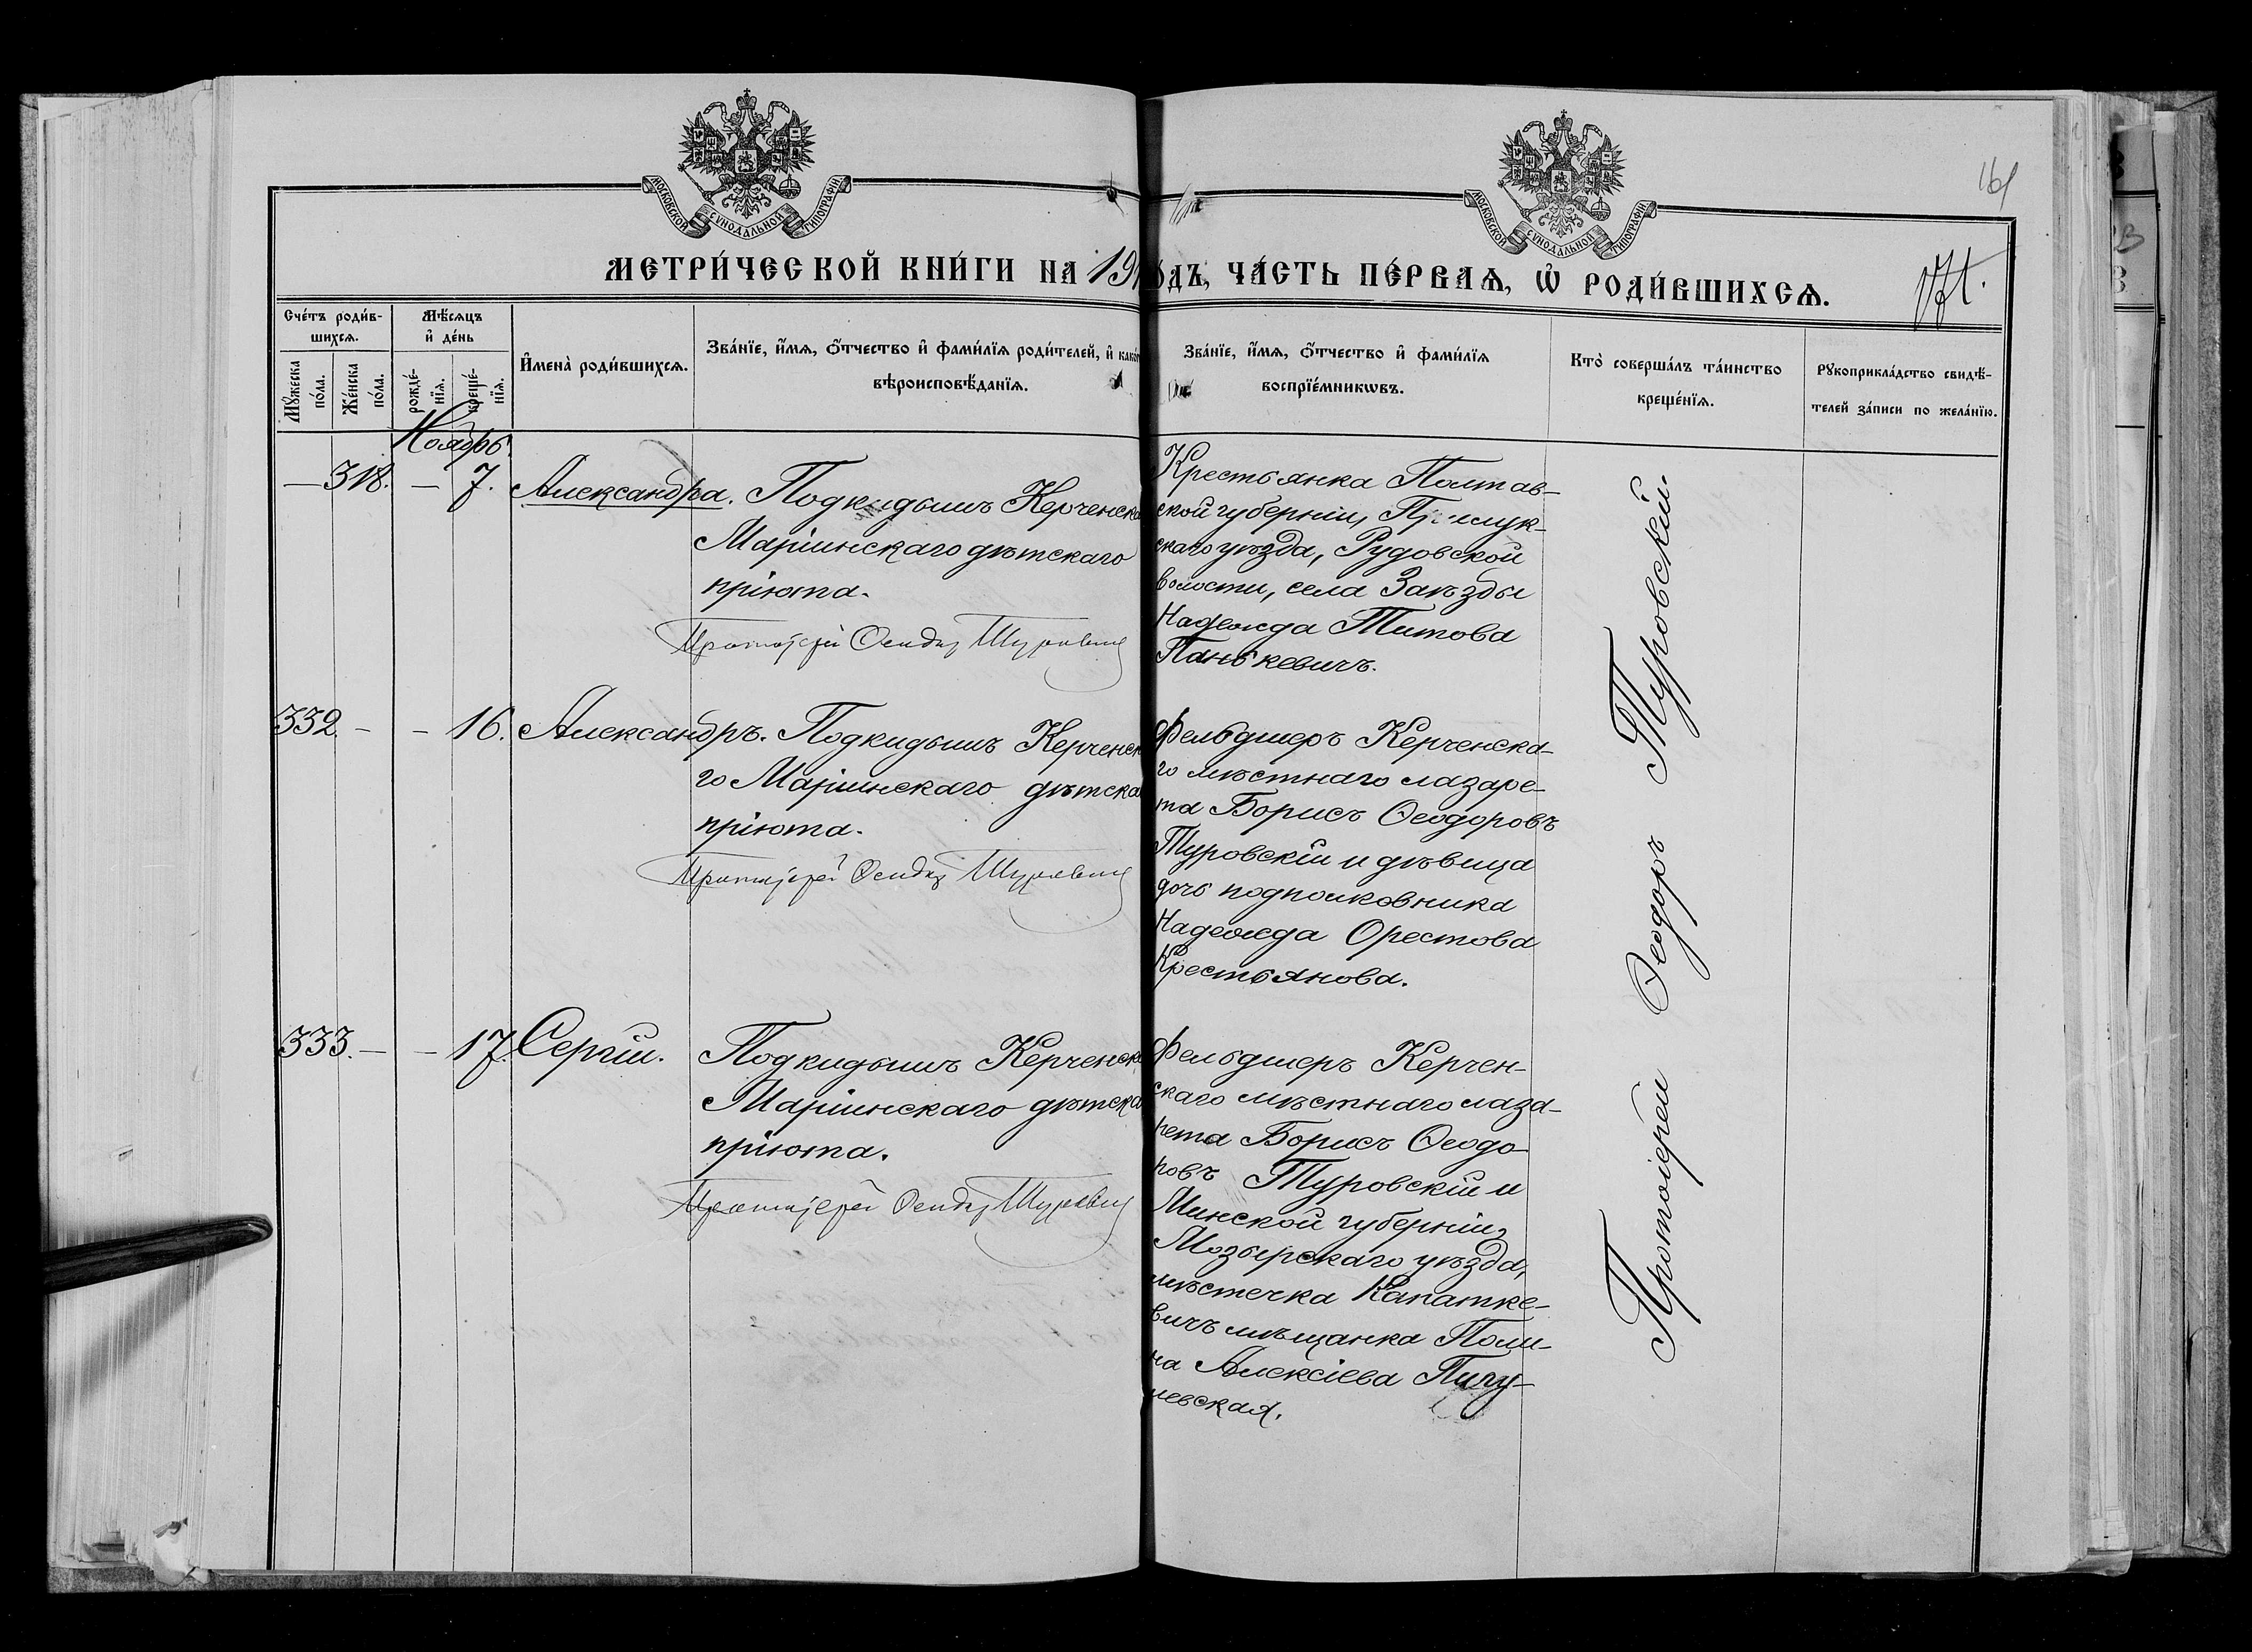 МОСКОВСКОЙ СУНОДАЛЬНОЙ ТИПОГРАФІИ
МОСКОВСКОЙ СУНОДАЛЬНОЙ ТИПОГРАФІИ
161
МЕТРИ́ЧЕСКОЙ КНИ́ГИ НА 191
ОДЪ, ЧА́СТЬ ПЕ́РВАѦ, Ѡ РОДИ́ВШИХСѦ.
Сче́тъ роди́в-
шихсѧ.
Мѣ́сѧцъ
и҆ де́нь
Мꙋ́жеска
по́ла.
Же́нска
по́ла.
рожде́-
нїѧ.
креще́-
нїѧ.
И҆мена̀ роди́вшихсѧ.
Зва́нїе, и҆́мѧ, ѻ҆́тчество и҆ фами́лїѧ роди́телей, и҆ како́г
вѣроисповѣ́данїѧ.
Зва́нїе, и҆́мѧ, ѻ҆́тчество и҆ фами́лїѧ
воспрїе́мникѡвъ.
Кто̀ соверша́лъ та́инство
креще́нїѧ.
Рꙋкоприкла́дство свидѣ́-
телей за́писи по жела́нїю.
Ноябрь.
— 318. — 7. Александра. Подкидышъ Керченска
Маріинскаго дѣтскаго
пріюта.
Протоіерей Ѳеодоръ Туровскій
Крестьянка Полтав-
ской губерніи, Прилук-
скаго уѣзда, Рудовской
волости, села Заѣзды
Надежда Титова
Панькевичъ.
332. – – 16. Александръ. Подкидышъ Керченск
го Маріинскаго дѣтска
пріюта.
Протоіерей Ѳеодоръ Туровскій
Фельдшеръ Керченска-
го мѣстнаго лазаре-
та Борисъ Ѳеодоровъ
Туровскій и дѣвица
дочь подполковника
Надежда Орестова
Крестьянова.
333. – – 17. Сергій. Подкидышъ Керченска
Маріинскаго дѣтска
пріюта.
Протоіерей Ѳеодоръ Туровскій
Фельдшеръ Керчен-
скаго мѣстнаго лаза-
рета Борисъ Ѳеодо-
ровъ Туровскій и
Минской губерніи,
Мозырскаго уѣзда,
мѣстечка Капатке-
вичъ мѣщанка Поли-
на Алексіева
Протоіерей Ѳеодоръ Туровскій.